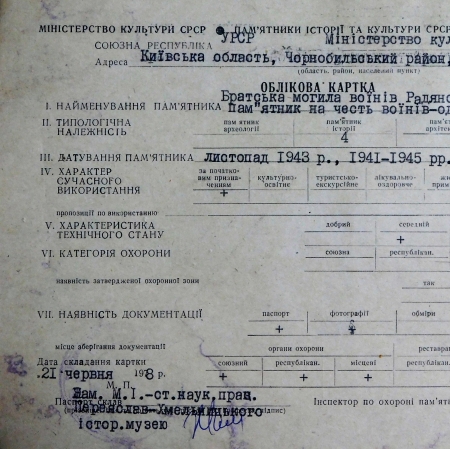 МІНІСТЕРСТВО КУЛЬТУРИ СРСР ПАМ'ЯТНИКИ ІСТОРІЇ ТА КУЛЬТУРИ СРСР
СОЮЗНА РЕСПУБЛІКА УРСР Міністерство кул
Адреса Київська область, Чорнобильський район,
(область, район, населений пункт)
ОБЛІКОВА КАРТКА
Братська могила воїнів Радянс
І. НАЙМЕНУВАННЯ ПАМ'ЯТНИКА Пам"ятник на честь воїнів-од
ІІ. ТИПОЛОГІЧНА НАЛЕЖНІСТЬ пам'ятник археології пам'ятник історії пам'я архітек
4
ІІІ. ДАТУВАННЯ ПАМ'ЯТНИКА листопад 1943 р., 1941-1945 рр.
IV. ХАРАКТЕР СУЧАСНОГО ВИКОРИСТАННЯ за початковим призначенням культурно-освітнє туристсько-екскурсійне лікувально-оздоровче
+
пропозиції по використанню
V. ХАРАКТЕРИСТИКА ТЕХНІЧНОГО СТАНУ добрий середній
+
VI. КАТЕГОРІЯ ОХОРОНИ союзна республікан.
наявність затвердженої охоронної зони так
VII. НАЯВНІСТЬ ДОКУМЕНТАЦІЇ паспорт фотографії обміри
+
місце зберігання документації органи охорони реставра
Дата складання картки союзний республікан. місцеві республікан.
21 червня 1978 р. + + + +
М. П.
Жам. М.І.-ст.наук.прац.
Паспорт склав Переяслав-Хмельницького Інспектор по охороні пам'ят
істор.музею